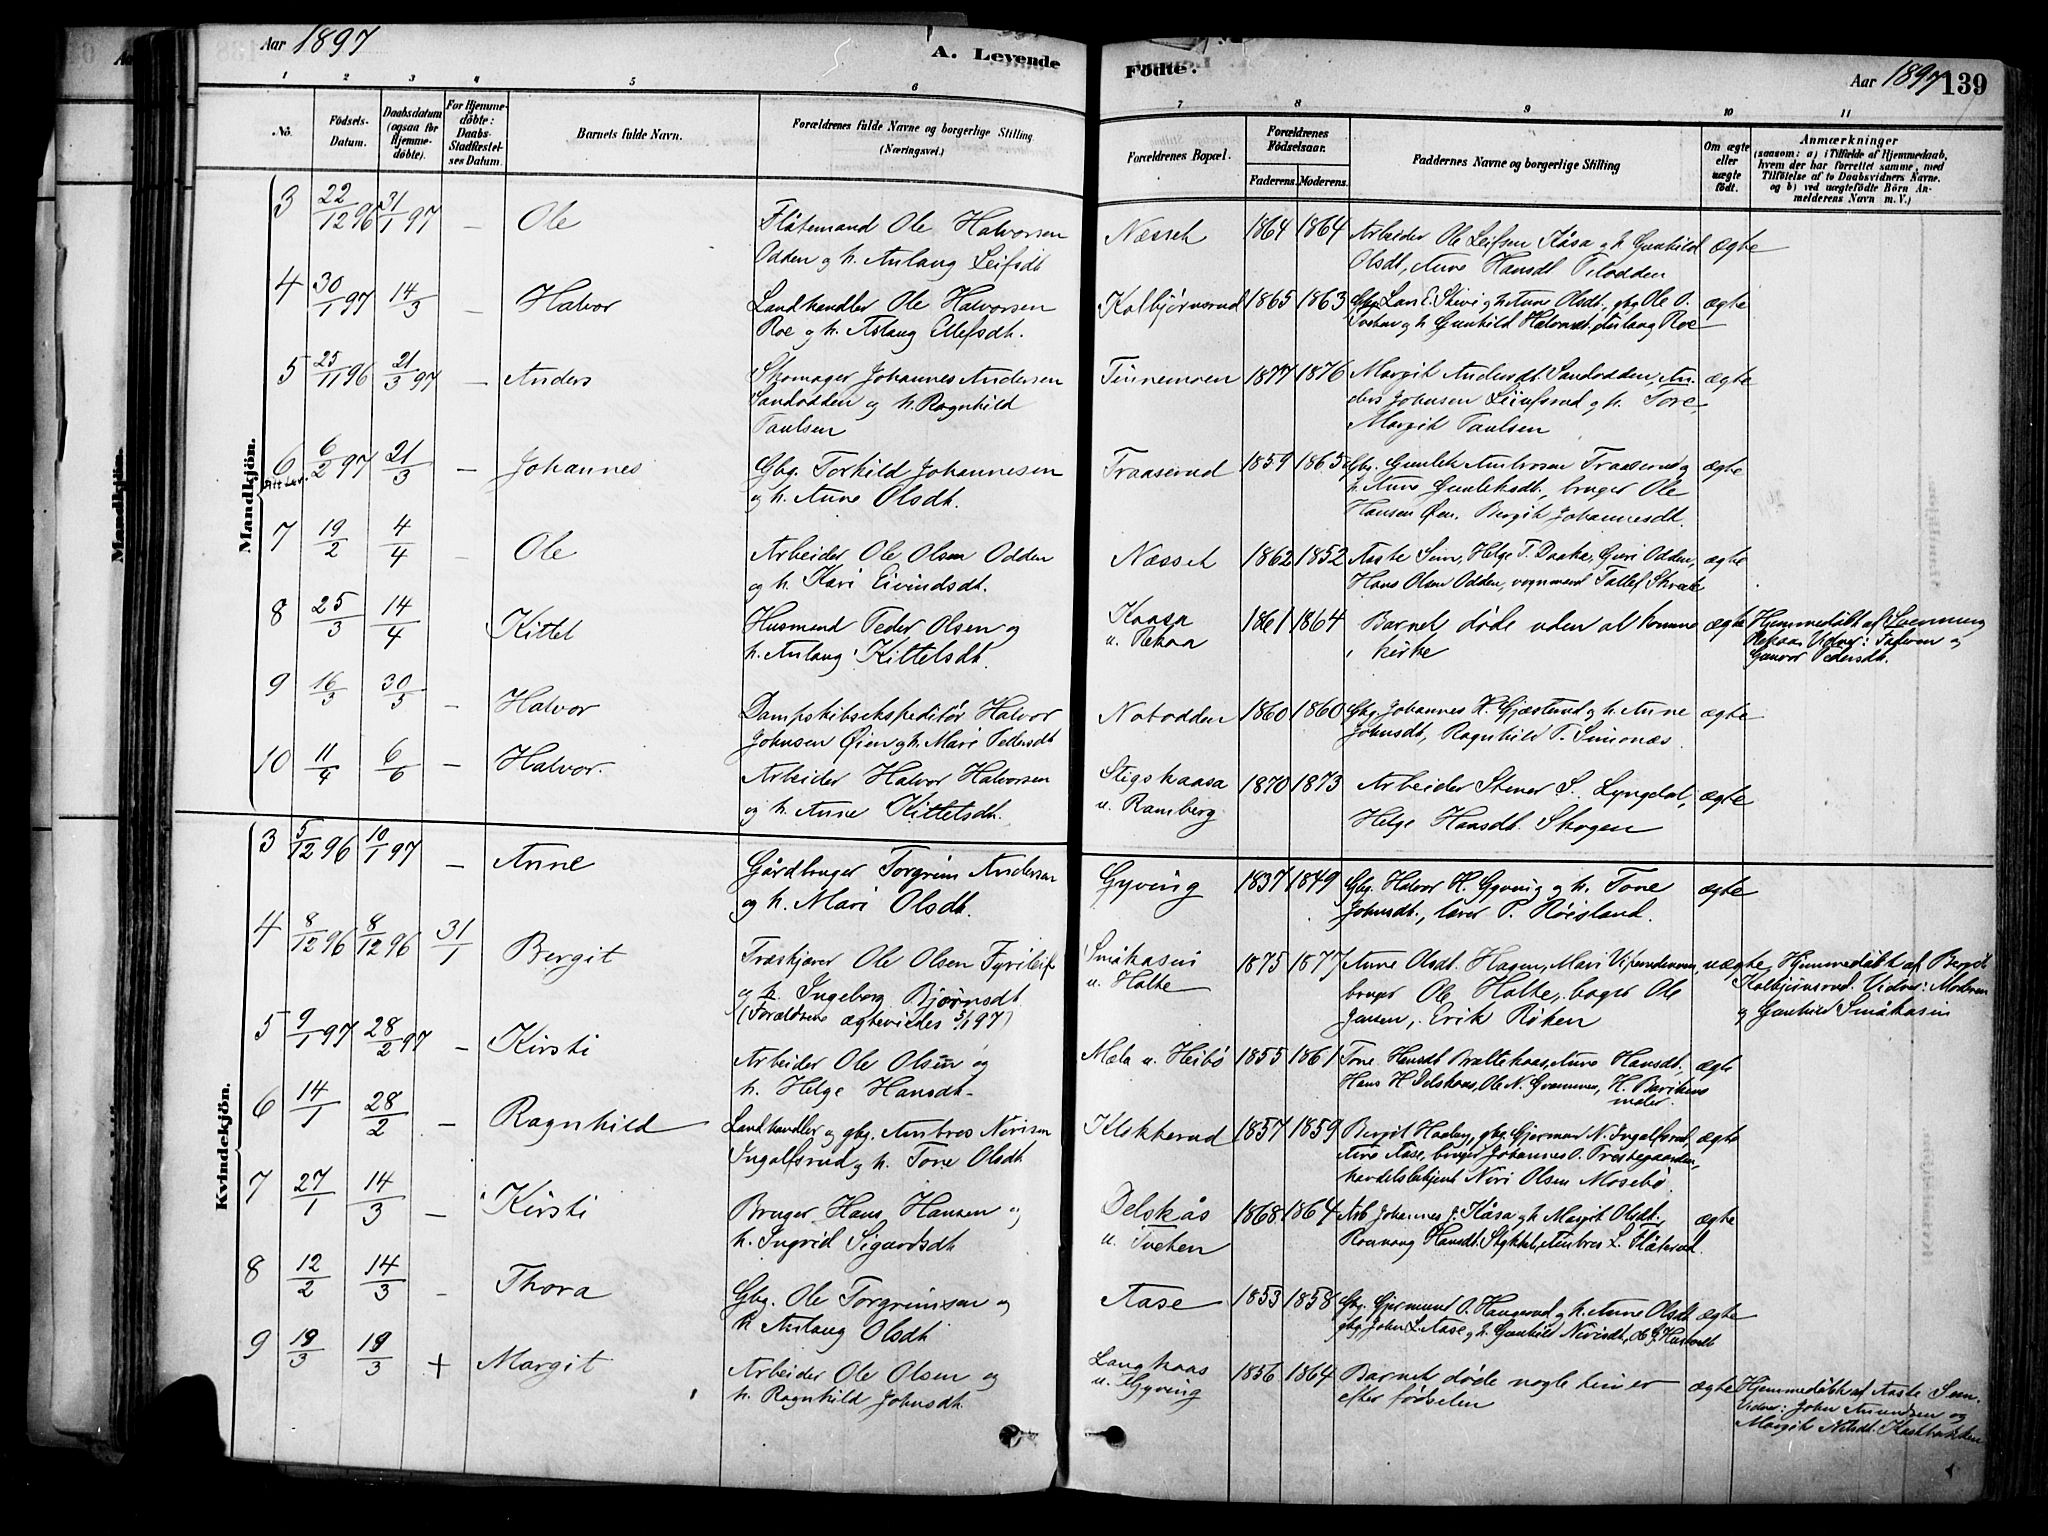 Aar 1897
A. Levende
Fødte.
Aar 1897 139
1 2 3 4 5 6 7 8 9 10 11
No.
Fødsels-
Datum.
Daabsdatum
(ogsaa for
Hjemme-
døbte).
For Hjemme-
døbte:
Daabs-
Stadfæstel-
ses Datum.
Barnets fulde Navn.
Forældrenes fulde Navne og borgerlige Stilling
(Næringsvei.)
Forældrenes Bopæl.
Forældrenes
Fødselsaar.
Faderens. Moderens.
Faddernes Navne og borgerlige Stilling
Om ægte
eller
uægte
født.
Anmærkninger
(saasom: a) i Tilfælde af Hjemmedaab,
hvem der har forrettet samme, med
Tilføielse af to Daabsvidners Navne.
og b) ved uægtefødte Børn An-
melderens Navn m. V.)
Mandkjön.
3 22/12 96 31/1 97 – Ole
Flåtemand Ole Halvorsen
Odden og h. Aslaug Leifsdt
Næsset 1864 1864
Arbeider Ole Leifsen Kåsa og h. Gunhild
Olsdt, Anne Hansdt
ægte
4 30/1 97 14/3 – Halvor
Landhandler Ole Halvorsen
Roe og h. Aslaug Ellefsdt.
Kolbjørnsrud 1865 1863
Gbg Lars E. og h. Anne Olsdt, gbg Ole O.
Tveten og h. Gunhild Halvorsdt, Aslaug Roe
ægte
5 25/11 96 21/3 97 – Anders
Skomager Johannes Andersen
Sandodden og h. Ragnhild
Paulsen
Tinnemoen 1877 1876
Margit Andersdt Sandodden, An-
ders Johnsen og h. Tore,
Margit Paulsen
ægte
6 2/6 97 21/3 – Johannes
Gbg. Torkild Johannesen
og h. Anne Olsdt.
Traaserud 1859 1865
Gbg. Gunlek Ambrosen Traaserud og
h. Anne Gunleksdt., bruger Ole
Hansen Øen, Bergit Johannesdt.
ægte
7 19/2 4/4 – Ole
Arbeider Ole Olsen Odden
og h. Kari Eivindsdt.
Næsset 1862 1852
Aaste Sem, Helge T. Guri Odden,
Hans Olsen Odden, vognmand Tallef
ægte
8 25/3 14/4 Kittel
Husmand Peder Olsen og
h. Aslaug Kittelsdt.
Kaasa
u. Rekaa
1861 1864
Barnet døde uden at komme
i kirke
ægte
Hjemmedøbt af Svenning
Rekaa. Vidner: Faderen og
Gunvor Pedersdt.
9 16/3 30/5 – Halvor
Dampskibsekspeditør Halvor
Johnsen Øien og h. Mari Pedersdt
Notodden 1860 1860
Gbg Johannes H. Gjæstrud og h. Anne
Johnsdt, Ragnhild P. Simonæs.
ægte
10 11/4 6/6 – Halvor.
Arbeider Halvor Halvorsen
og h. Anne Kittelsdt.
Stigskaasa
u. Ramberg
1870 1873
Arbeider Stener S. Lyngdal,
Helge Hansdt. Skogen
ægte
Kvindekjön.
3 5/12 96 10/1 97 – Anne
Gårdbruger Torgrim Andersen
og h. Mari Olsdt.
Gyving 1837 1849
Gbg. Halvor H. Gyving og h. Tone
Johnsdt., lærer P. Röisland.
ægte
4 8/12 96 8/12 96 31/1 Bergit
Træskjærer Ole Olsen Fyrileif
og h. Ingeborg Bjørnsdt.
(Forældrene ægteviedes 5/1 97)
Småkasin
u. Holte
1875 1877
Anne Olsdt. Hagen, Mari
bruger Ole Holte, bager Ole
Jensen, Erik Röken
uægte
Hjemmedøbt af Bergit
Kolbjörnsrud. Vidner: Moderen
og Gunhild Småkasin
5 9/1 97 28/2 97 – Kirsti
Arbeider Ole Olsen og
h. Helge Hansdt.
Mæla u. Heibö 1855 1861
Tone Hansdt Anne Hansdt.
Hans H Delskaas, Ole N.
ægte
6 14/1 28/2 – Ragnhild
Landhandler og gbg. Ambros Nirisen
Ingolfsrud og h. Tone Olsdt.
Klokkerud 1857 1859
Bergit gbg. Gjermund N. Ingolfsrud,
Anne Aase, bruger Johannes O. Prestegaarden,
handelsbetjent Niri Olsen Mosebö.
ægte
7 27/1 14/3 – Kirsti
Bruger Hans Hansen og
h. Ingrid Sigurdsdt.
Delskås
u. Tveten
1868 1864
Arb Johannes J. Kåsa og h. Margit Olsdt.
Rønnaug Hansdt. Ambros L. Flåterud.
ægte
8 12/2 14/3 – Thora
Gbg. Ole Torgrimsen og
h Aslaug Olsdt.
Aase 1853 1858
Gbg. Gjermund O. Haugerud og h. Anne Olsdt
gbg. John L. Aase og h. Gunhild Nirisdt,
ægte
9 19/3 19/3 + Margit
Arbeider Ole Olsen og
h. Ragnhild Johnsdt.
Langkaas
u. Gyving
1856 1864
Barnet døde nogle timer
efter fødselen
ægte
Hjemmedøbt af Aaste Sem.
Vidner: John Amundsen og
Margit Nilsdt.